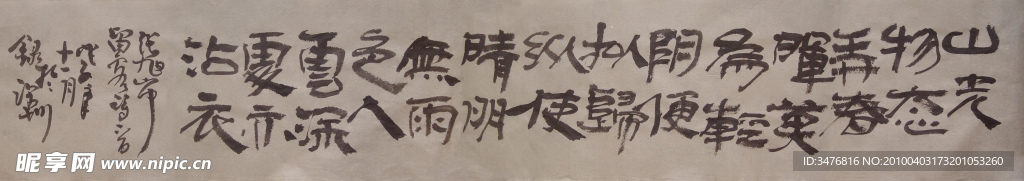 山光
物态
弄春
暉莫
為輕
阴便
拟歸
纵使
晴明
無雨
色入
雲深
處亦
沾衣
张旭山中
留客诗一首
戊子年
十一月
於深圳
昵享网 www.nipic.cn
ID:3476816 NO:20100403173201053260